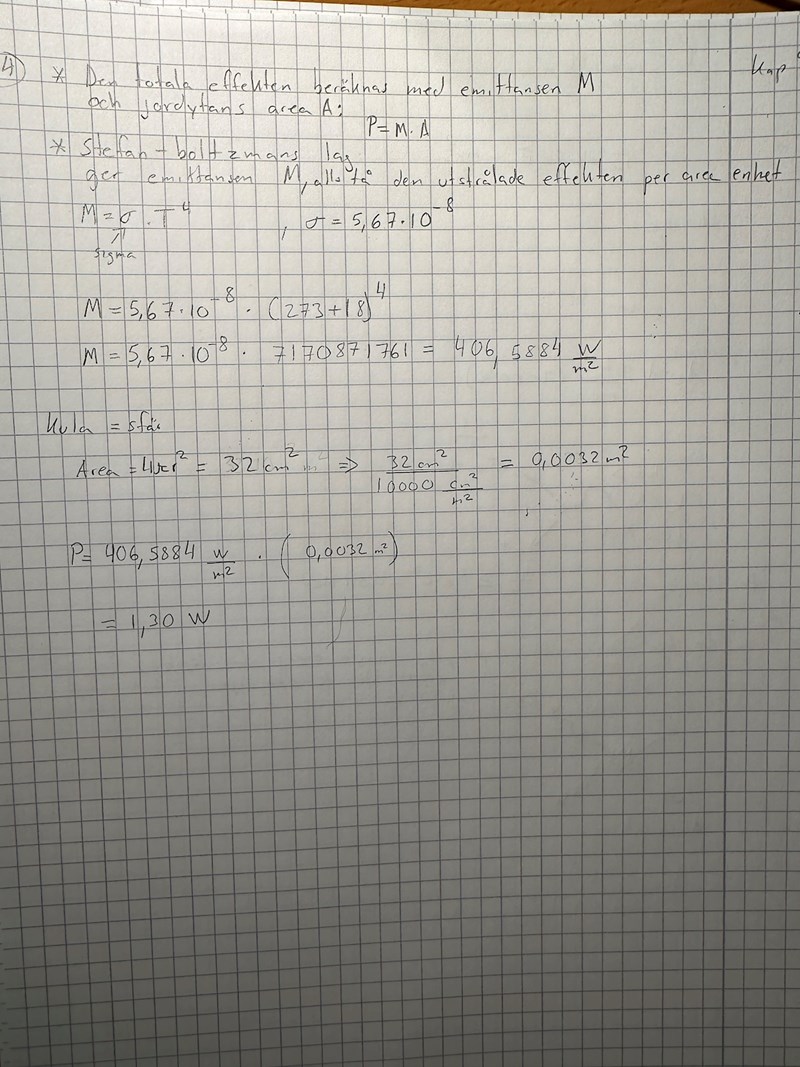 4) * Den totala effekten beräknas med emittansen M
Kap
och jordytans area A:
P = M · A
* Stefan-boltzmans lag
ger emittansen M, alltså den utstrålade effekten per area enhet
M = σ · T⁴ , σ = 5,67·10⁻⁸
sigma
M = 5,67·10⁻⁸ · (273+18)⁴
M = 5,67·10⁻⁸ · 7170871761 = 406,5884 W/m²
Kula = sfär
Area = 4πr² = 32 cm² ⇒ 32 cm² / 10000 cm²/m² = 0,0032 m²
P = 406,5884 W/m² · (0,0032 m²)
= 1,30 W